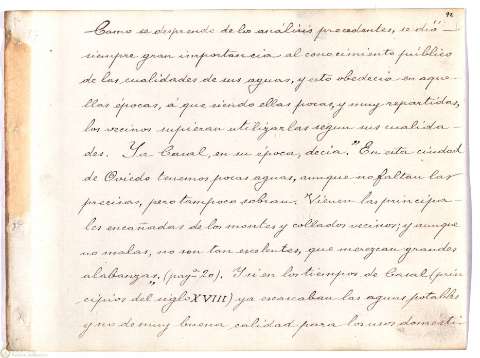 Como se desprende de los análisis precedentes, se dió
siempre gran importancia al conocimiento público
de las cualidades de sus aguas, y esto obedecia en aque-
llas épocas, á que siendo ellas pocas, y muy repartidas,
los vecinos supieran utilizarlas segun sus cualida-
des. Ya Casal, en su época, decia. "En esta ciudad
de Oviedo tenemos pocas aguas, aunque no faltan las
precisas, pero tampoco sobran. Vienen las principa-
les encañadas de los montes y collados vecinos; y aunque
no malas, no son tan excelentes, que merezcan grandes
alabanzas," (pagª 20). Si en los tiempos de Casal (prin-
cipios del siglo XVIII) ya escaseaban las aguas potables
y no de muy buena calidad para los usos domésti-